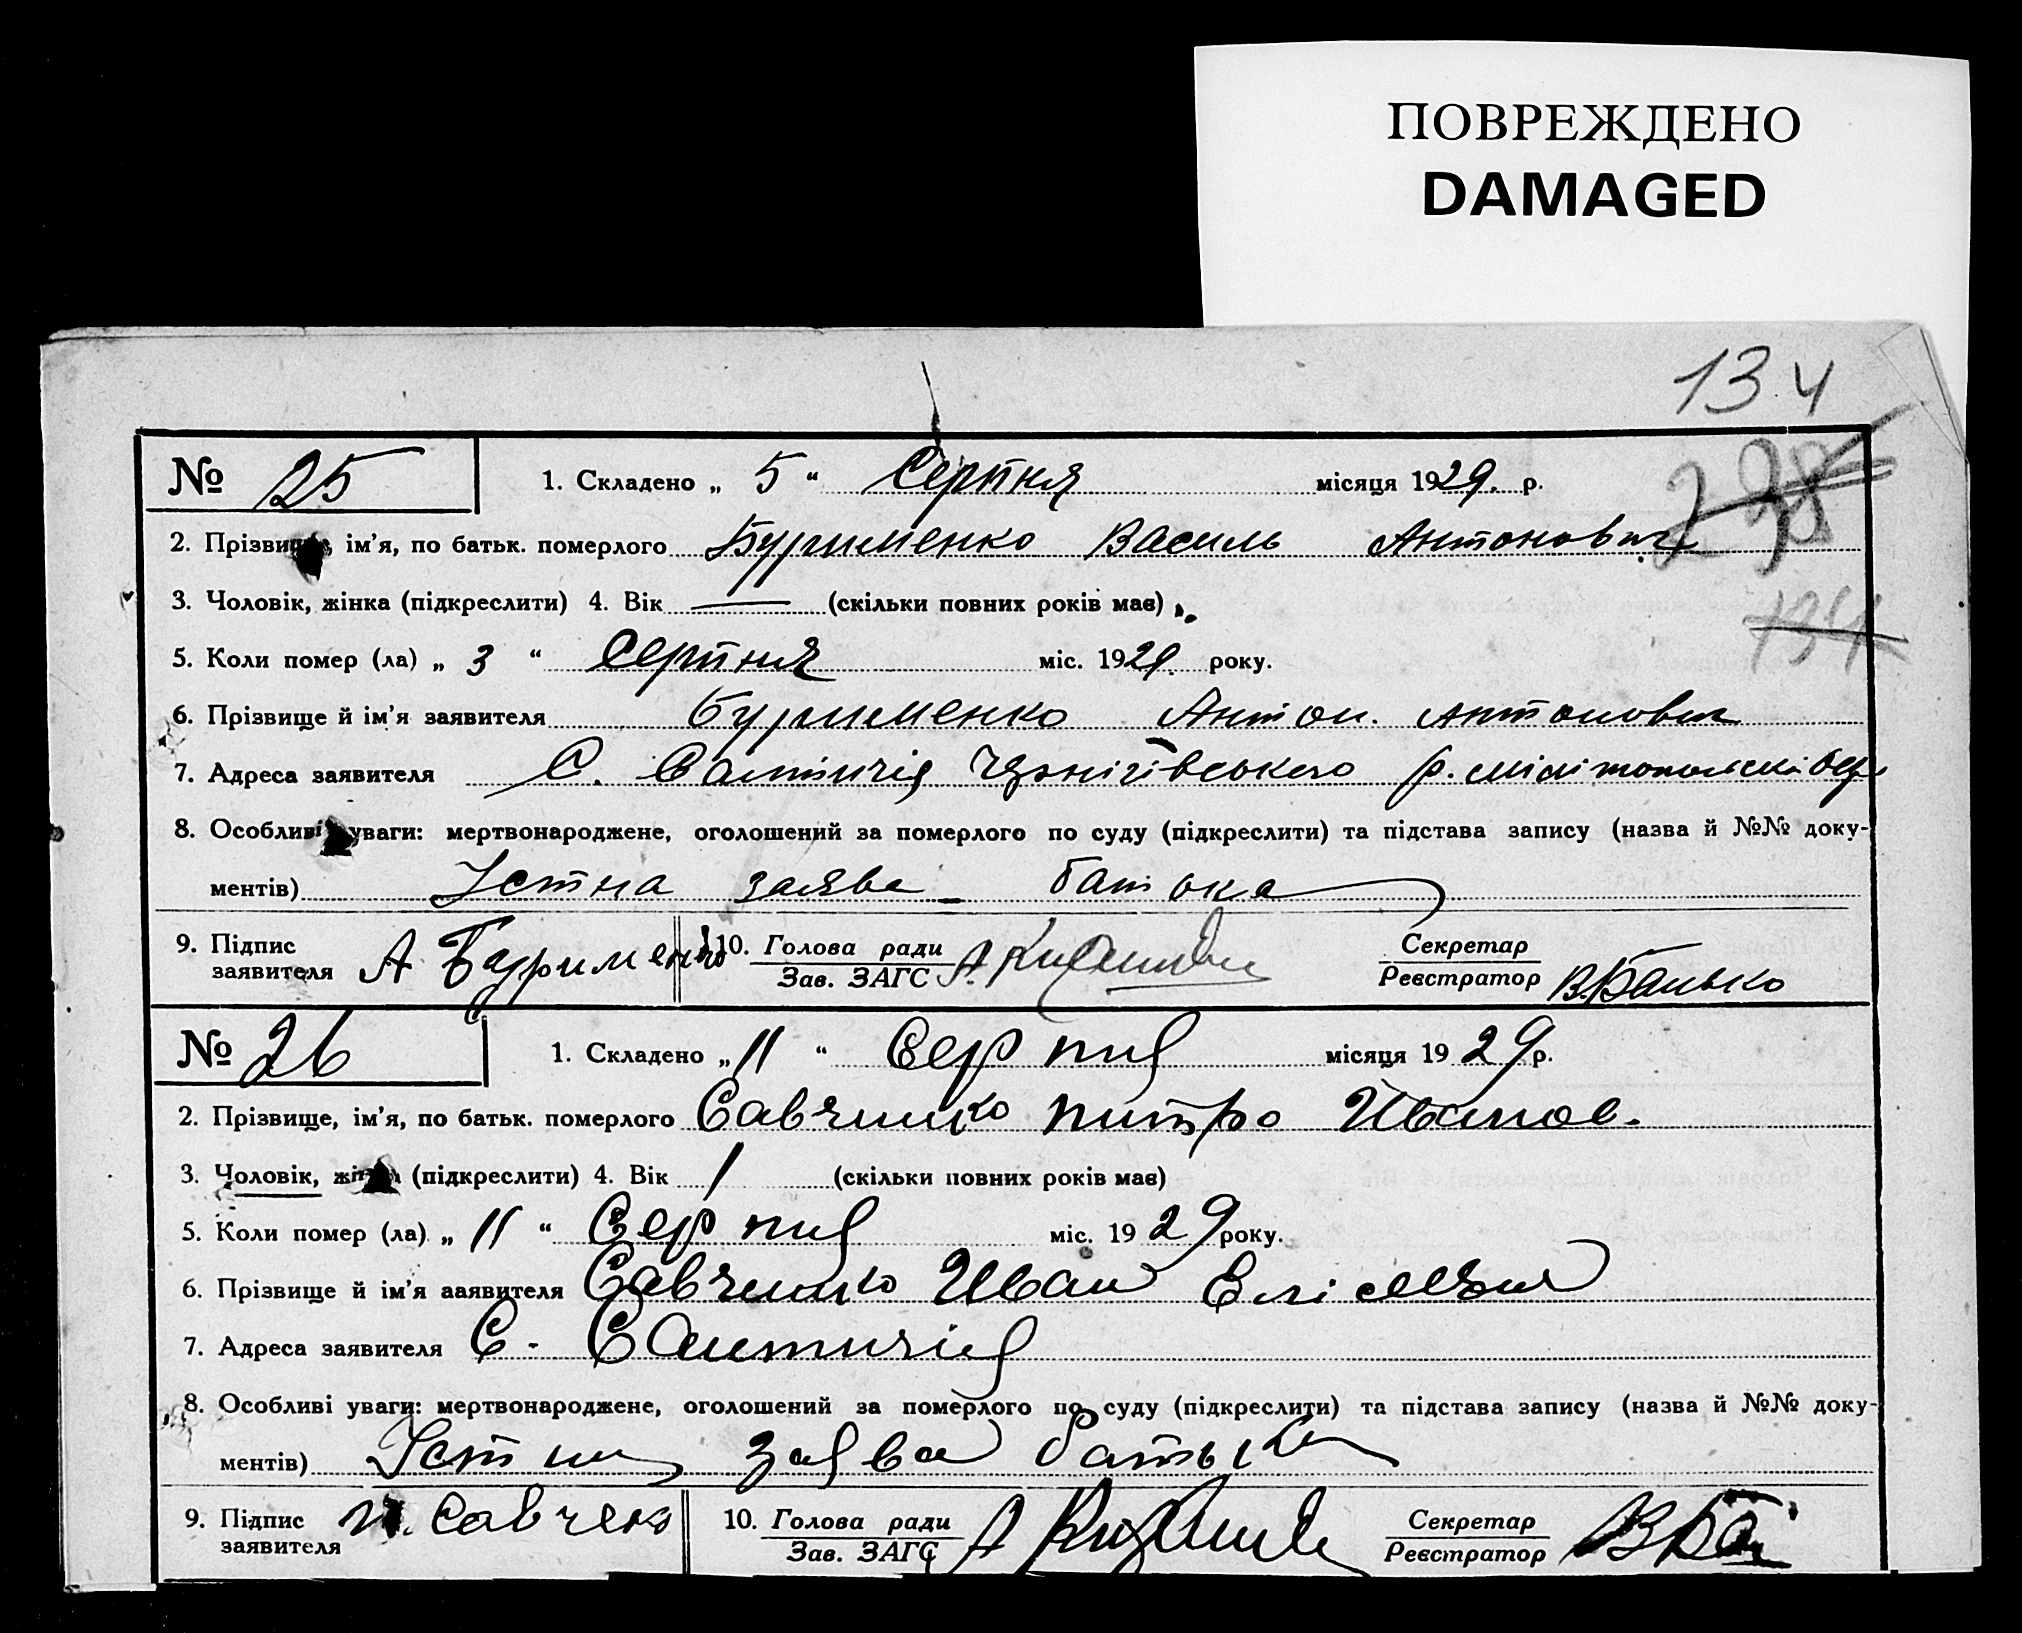 ПОВРЕЖДЕНО
DAMAGED
134
№ 25 1. Складено „ 5 “ Серпня місяця 1929. р.
2. Прізвище, ім’я, по батьк. померлого Бурименко Василь Антонович
134
3. Чоловік, жінка (підкреслити) 4. Вік — (скільки повних років має)
5. Коли помер (ла) „ 3 “ Серпня міс. 1929. року.
6. Прізвище й ім’я заявителя Бурименко Антон. Антонович
7. Адреса заявителя С. Салтичія Чернігівського р.
8. Особливі уваги: мертвонароджене, оголошений за померлого по суду (підкреслити) та підстава запису (назва й №№ доку-
ментів) Устна заява батька
9. Підпис заявителя А Бурименко 10. Голова ради Зав. ЗАГС А. Секретар Реєстратор В.Балько
№ 26 1. Складено „ 11 “ Серпня місяця 1929 р.
2. Прізвище, ім’я, по батьк. померлого Савченко Питро Иванов.
3. Чоловік, жінка (підкреслити) 4. Вік 1 (скільки повних років має)
5. Коли помер (ла) „ 11 “ Серпня міс. 1929 року.
6. Прізвище й ім’я заявителя Савченко Иван
7. Адреса заявителя С. Салтичія
8. Особливі уваги: мертвонароджене, оголошений за померлого по суду (підкреслити) та підстава запису (назва й №№ доку-
ментів) Устна заява батька
9. Підпис заявителя Савчеко 10. Голова ради Зав. ЗАГС А Секретар Реєстратор